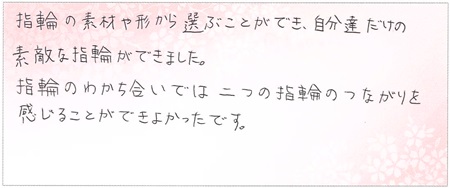 指輪の素材や形から選ぶことができ、自分達だけの
素敵な指輪ができました。
指輪のわかち合いでは 二つの指輪のつながりを
感じることができよかったです。